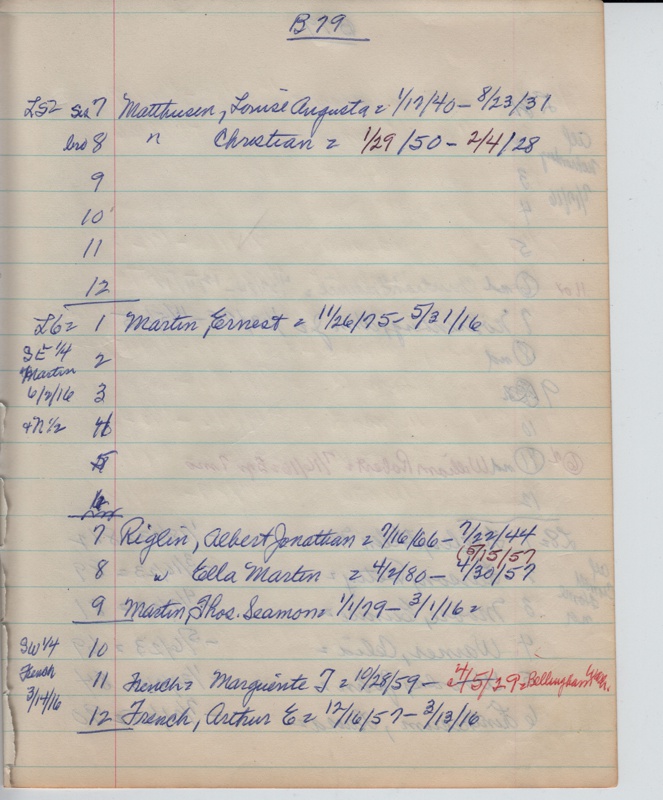 B 79
L52 sis 7 Matthusen, Louise Augusta = 1/17/40 - 8/23/31
bro 8 " Christian = 1/29/50 - 2/4/28
9
10
11
12
L6= 1 Martin Ernest = 11/26/75 - 5/31/16
SE 1/4 2
Martin
6/2/16 3
+N 1/2 4
5
6
7 Riglin, Albert Jonathan = 7/16/66 - 7/22/44
(5/15/57
8 " Ella Martin = 4/2/80 - 4/30/57
9 Martin, Thos. Seamon = 1/1/79 - 3/1/16 =
SW 1/4 10
French
3/14/16 11 French = Marguerite J = 10/28/59 - 4/5/29 = Bellingham
12 French, Arthur E = 12/16/57 - 3/13/16